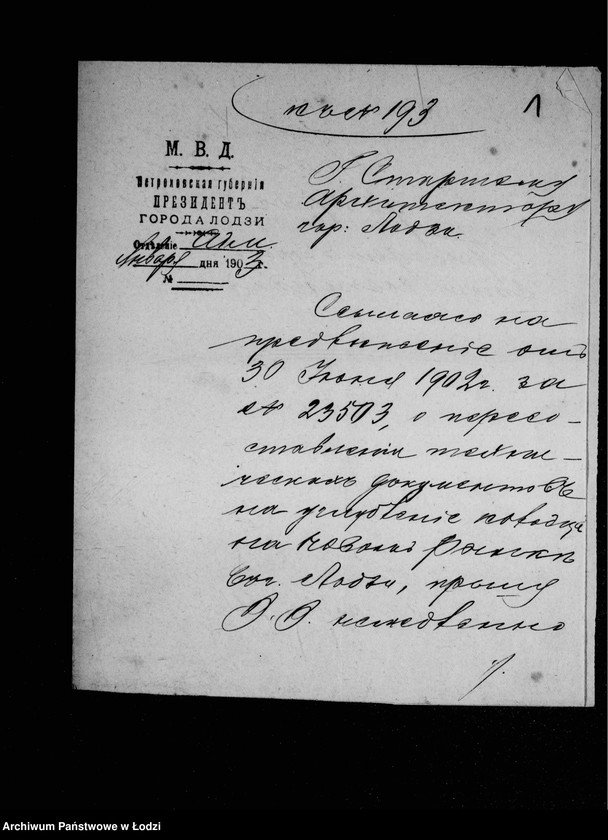 к сл № 193
1
М. В. Д.
Петроковская губернія
ПРЕЗИДЕНТЪ
ГОРОДА ЛОДЗИ
Отдѣленіе Адм.
Января дня 1903 г.
№
Г. Старшему
Архитектору
гор: Лодзи.
Ссылаясь на
предписаніе отъ
30 Іюня 1902 г. за
№ 23503, о пересо-
ставленіи техни-
ческихъ документовъ
на углубленіе колодца
на Новомъ Рынкѣ
въ г. Лодзи, прошу
В. В. немедленно
Archiwum Państwowe w Łodzi